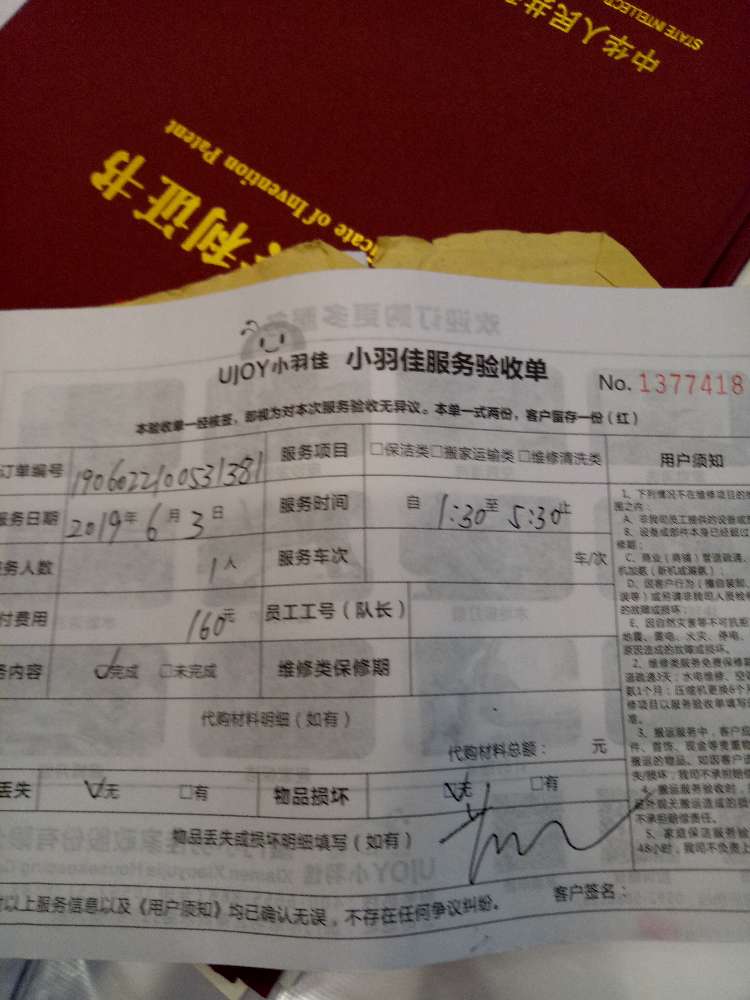 中华人民共
STATE INTELLECT
利证书
icate of Invention Patent
欢迎订购更多服务
UJOY小羽佳 小羽佳服务验收单
No. 1377418
本验收单一经核签，即视为对本次服务验收无异议。本单一式两份，客户留存一份（红）
订单编号 1906022100531381 服务项目 □保洁类□搬家运输类 □维修清洗类 用户须知
服务日期 2019年 6月 3日 服务时间 自 1:30至 5:30止
务人数 1人 服务车次 车/次
付费用 160元 员工工号（队长）
务内容 ☑完成 □未完成 维修类保修期
代购材料明细（如有）
代购材料总额： 元
丢失 ☑无 □有 物品损坏 ☑无 □有
物品丢失或损坏明细填写（如有）
对以上服务信息以及《用户须知》均已确认无误，不存在任何争议纠纷。 客户签名：
1、下列情况不在维修项目的
围之内：
A、非我司员工提供的设备或
B、设备或部件本身已经超过
修期；
C、商业（商铺）管道疏通、
机加氨（新机或漏氨）；
D、因客户行为（擅自装卸、
误等）或另请非我司人员检修
的故障或损坏；
E、因自然灾害等不可抗拒
地震、雷电、水灾、停电、
原因造成的故障或损坏。
2、维修类服务免费保修期
道疏通3天；水电维修、空
氨1个月；压缩机更换6个
修项目以服务验收单填写
准。
3、搬运服务中，客户应
件、首饰、现金等贵重物
搬运的物品。如因客户
失/损坏；我司不承担赔偿
4、搬运服务验收时，
意外或搬运造成的损
不承担赔偿责任。
5、家庭保洁服务验
48小时，我司不负责上